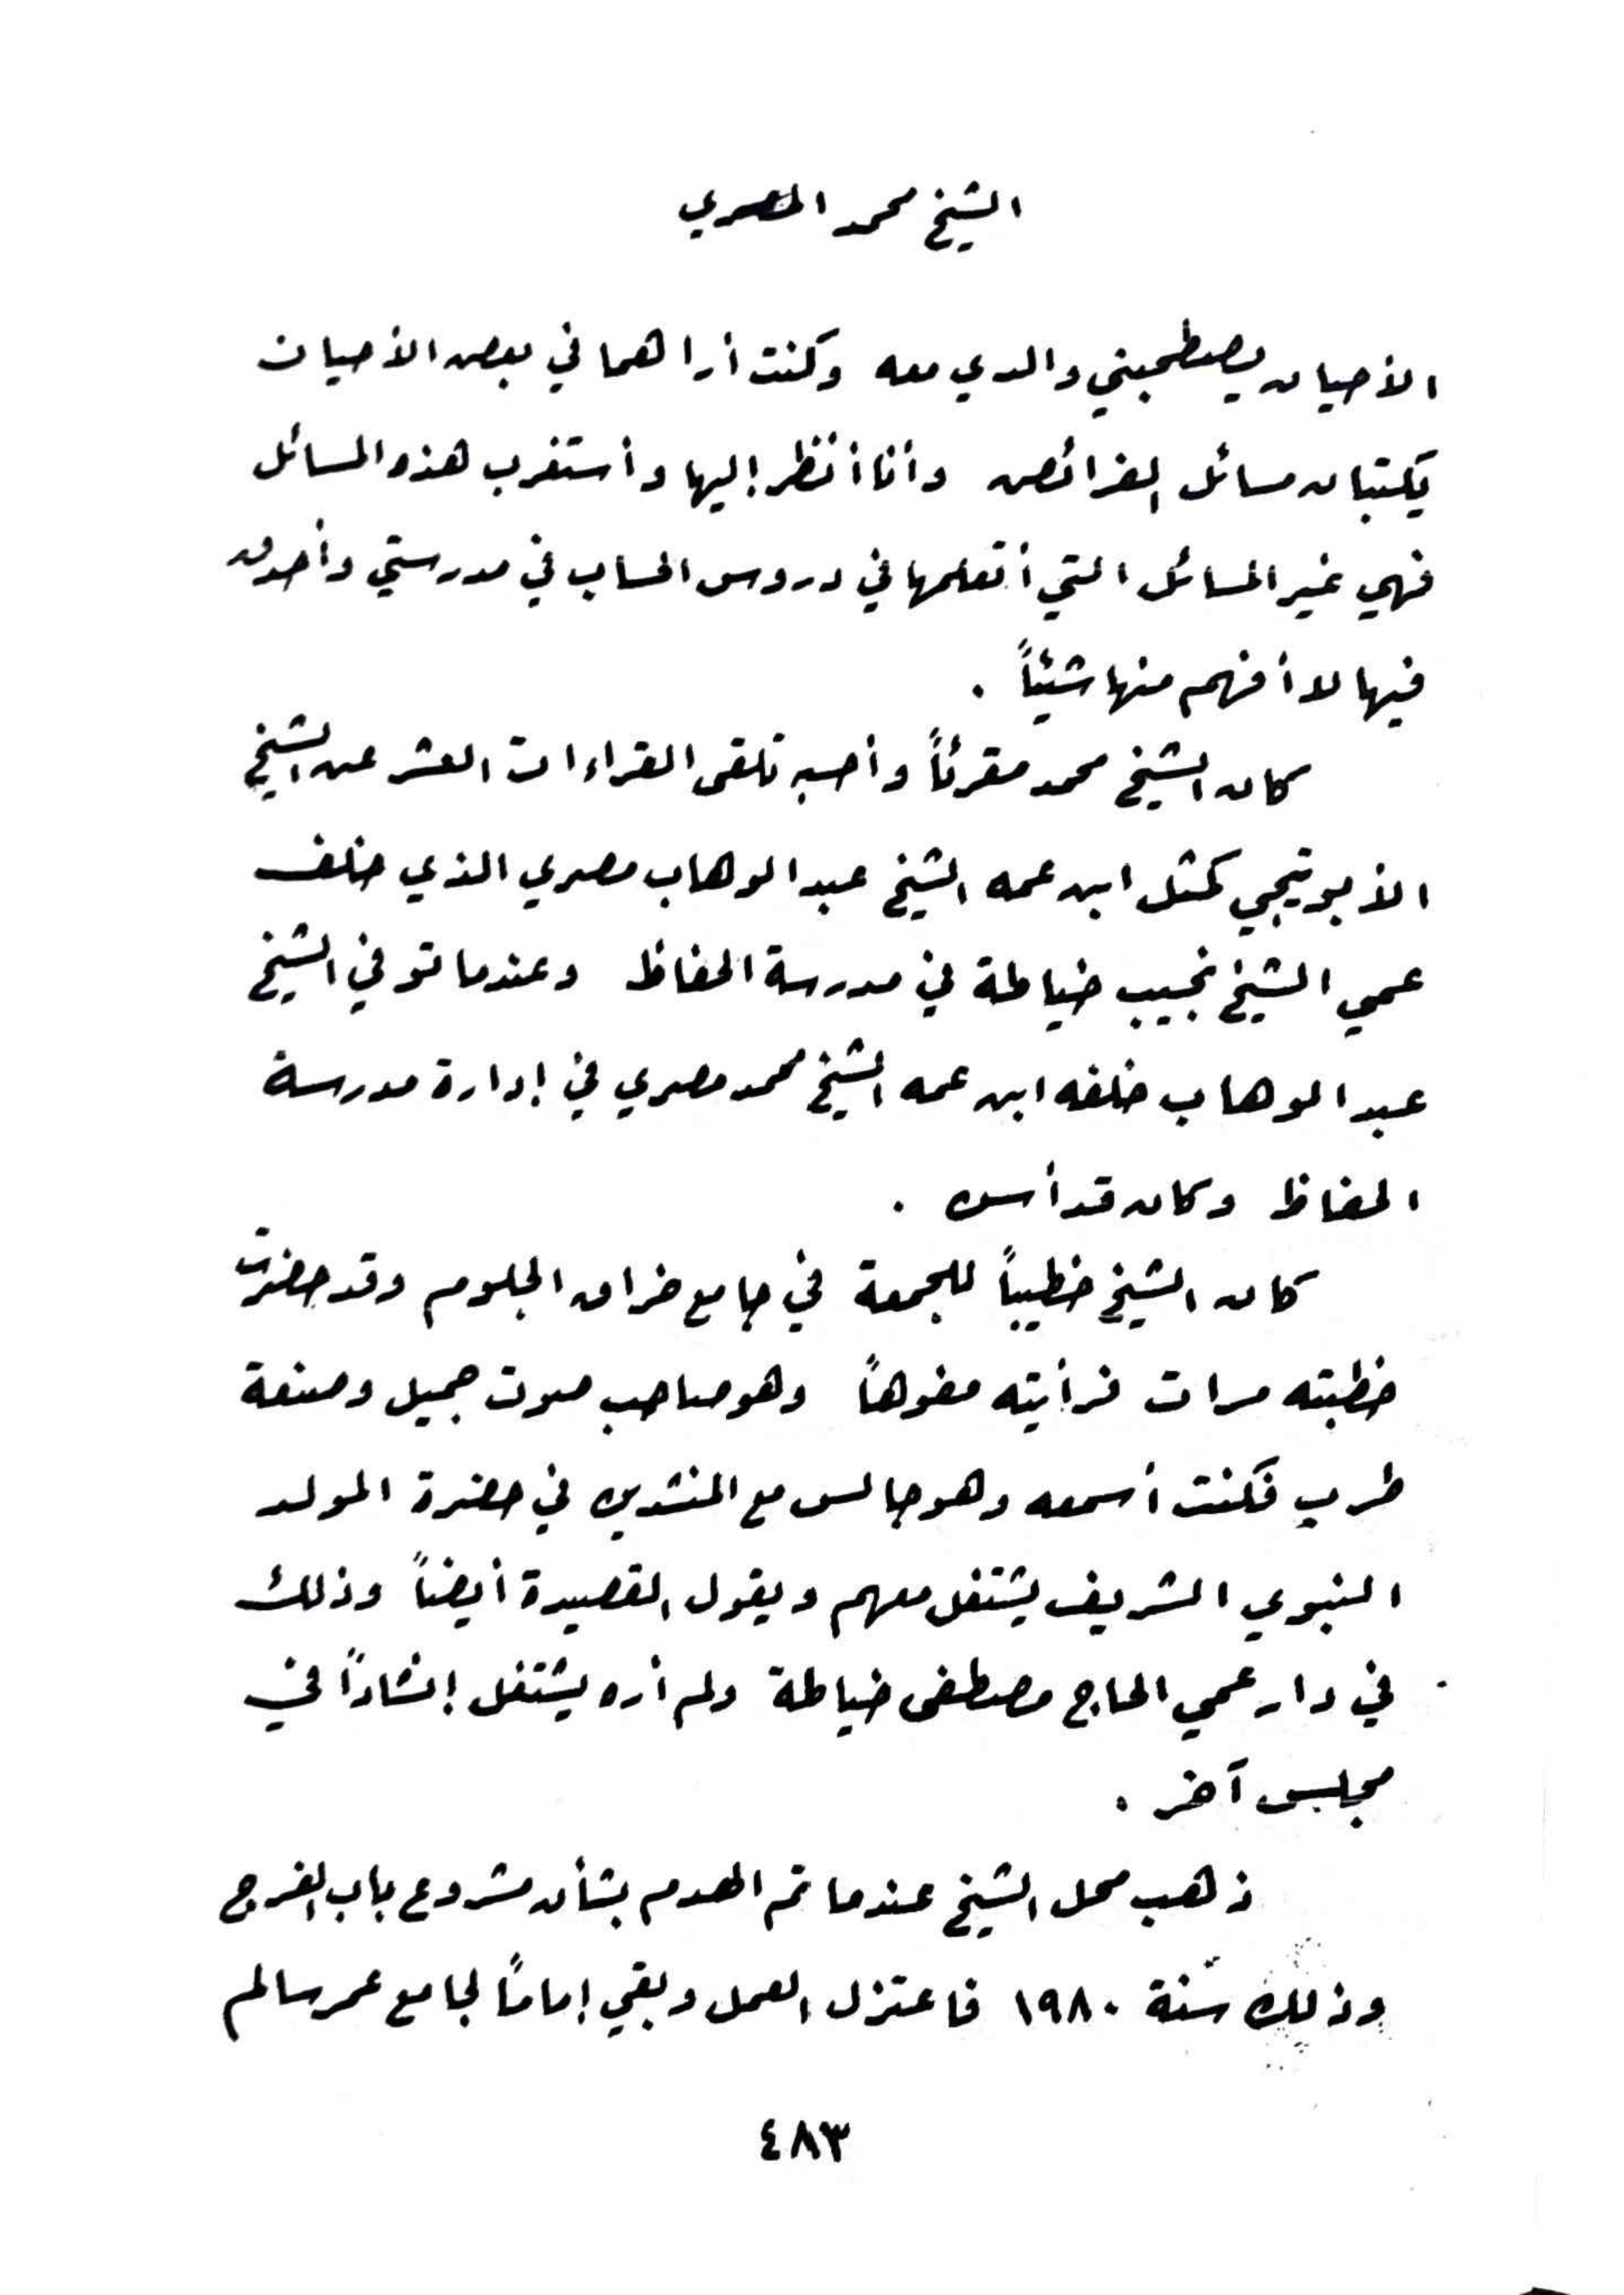 الشيخ محمد المصري
الأحيان يصطحبني والدي معه وكنت أراهما في بعض الأحيان
يكتبان مسائل الفرائض وأنا أنظر إليها وأستغرب هذه المسائل
فهي غير المسائل التي أتعلمها في دروس الحساب في مدرستي وأحدق
فيها لا أفهم منها شيئاً .
كان الشيخ محمد مقرئاً وأحسبه تلقى القراءات العشر عن الشيخ
الأبوتيجي كمثل ابن عمه الشيخ عبد الوهاب مصري الذي خلف
عمي الشيخ نجيب خياطة في مدرسة الحفاظ وعندما توفي الشيخ
عبد الوهاب خلفه ابن عمه الشيخ محمد مصري في إدارة مدرسة
الحفاظ وكان قد أسن .
كان الشيخ خطيباً للجمعة في جامع خراق الجلوم وقد حضرت
خطبته مرات فرأيته مفوهاً وهو صاحب صوت جميل وصنعة
طرب فكنت أسمعه وهو جالس مع المنشدين في حضرة المولد
النبوي الشريف يشتغل معهم ويقول القصيدة أيضاً وذلك
في دار عمي الحاج مصطفى خياطة ولم أره يشتغل إنشاداً في
مجلس آخر .
ذهب محل الشيخ عندما تم الهدم بشأن مشروع باب الفرج
وذلك سنة ١٩٨٠ فاعتزل العمل وبقي إماماً لجامع عمر سالم
٤٨٣